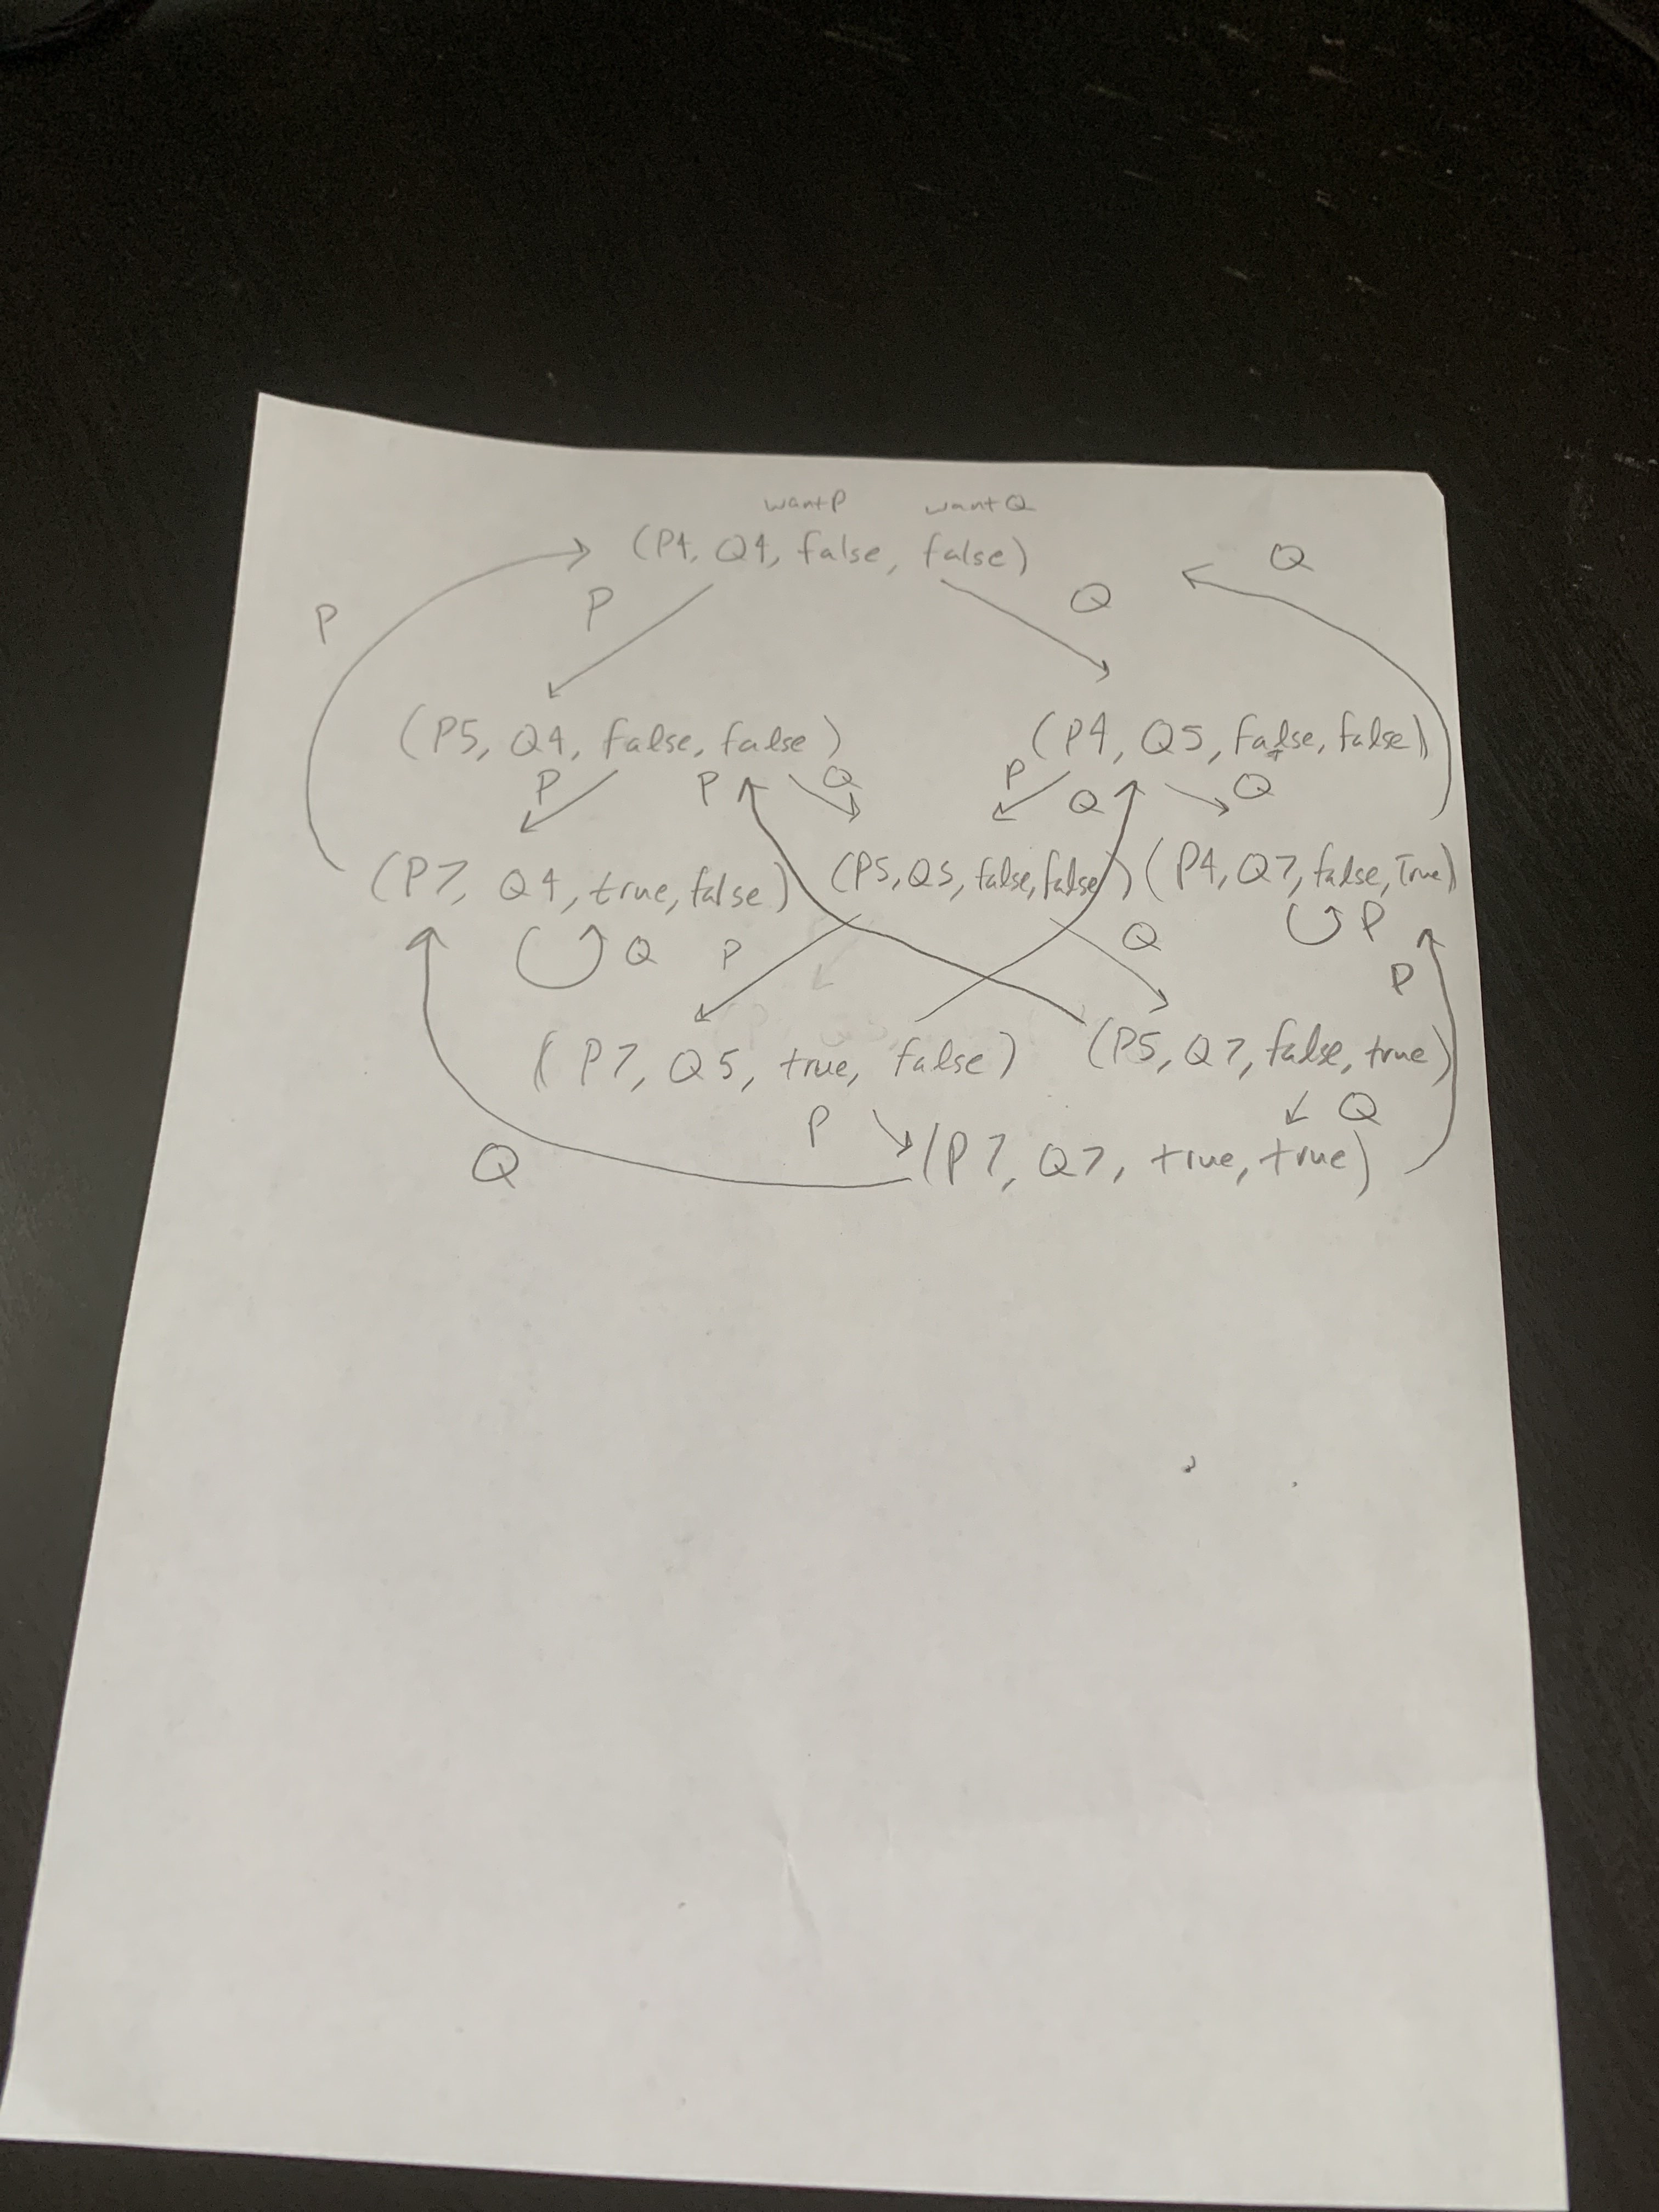 wantP wantQ
(P4, Q4, false, false)
P P Q Q
(P5, Q4, false, false) (P4, Q5, false, false)
P P Q P Q Q
(P7, Q4, true, false) (P5, Q5, false, false) (P4, Q7, false, True)
Q P Q P P
(P7, Q5, true, false) (P5, Q7, false, true)
P Q
Q (P7, Q7, true, true)